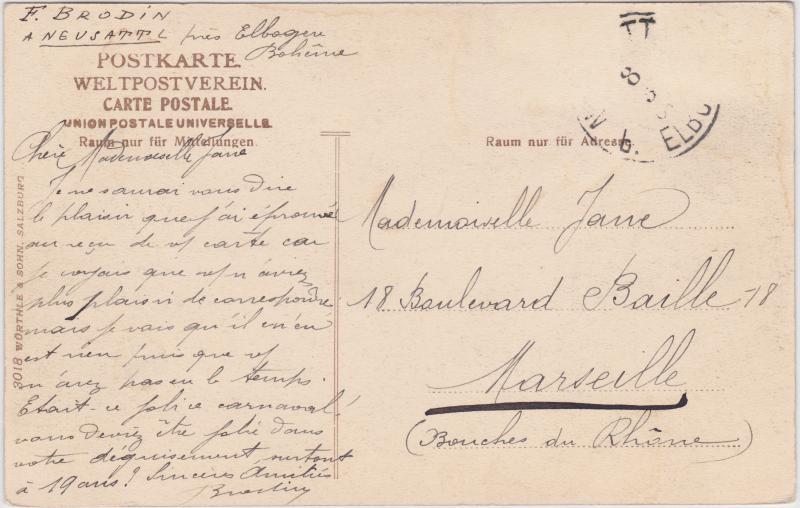 F. BRODIN
A NEUSATTL près Elbogen
Bohême
POSTKARTE.
WELTPOSTVEREIN.
CARTE POSTALE.
UNION POSTALE UNIVERSELLE.
Raum nur für Mitteilungen.
Raum nur für Adresse.
Chère Mademoiselle Jane
Je ne saurai vous dire
le plaisir que j'ai éprouvé
au reçu de vs carte car
je croyais que vs n'avez
plus plaisir de correspondre
mais je vois qu'il n'en
est rien puis que vs
n'avez pas eu le temps.
Etait-ce joli ce carnaval!
vous deviez être jolie dans
votre déguisement surtout
à 19 ans? Sincères Amitiés
Brodin
Mademoiselle Jane
18 Boulevard Baille -18
Marseille
(Bouches du Rhône)
3018 WÜRTHLE & SOHN, SALZBURG
ELBO